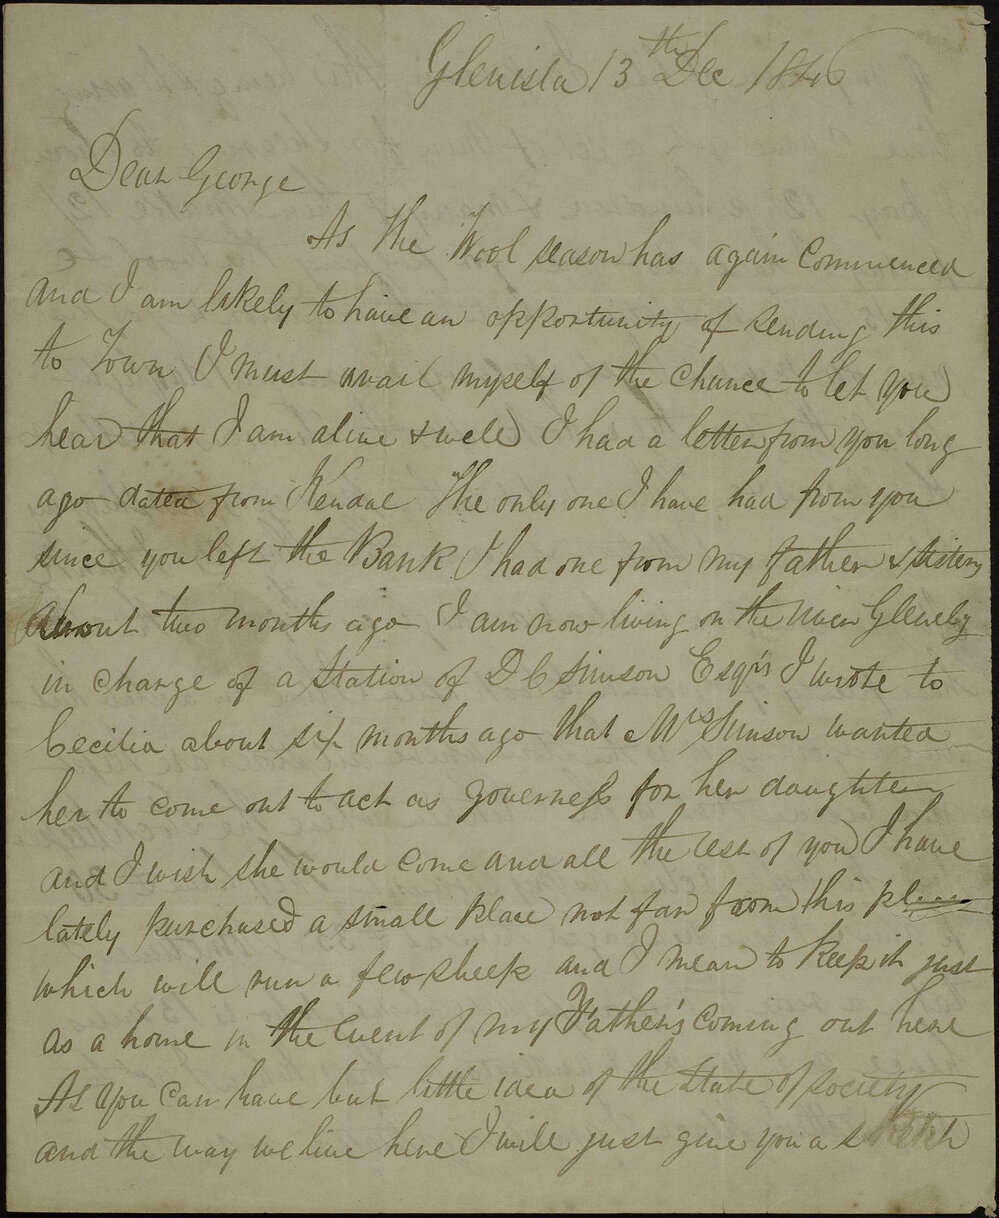 Glenisla 13th Dec 1846
Dear George
As the Wool season has again Commenced
and I am likely to have an opportunity of sending this
to Town I must avail myself of the Chance to let you
hear that I am alive & well I had a letter from you long
ago dated from Kendal The only one I have had from you
since you left the Bank I had one from my father & sisters
about two months ago I am now living on the river Glenelg
in charge of a Station of D C Simson Esqrs I wrote to
Cecilia about six months ago that Mrs Simson wanted
her to come out to act as governess for her daughter
and I wish she would come and all the rest of you I have
lately purchased a small place not far from this
which will run a few sheep and I mean to keep it just
as a home in the Event of my Father's coming out here
As you can have but little idea of the state of society
and the way we live here I will just give you a sketch